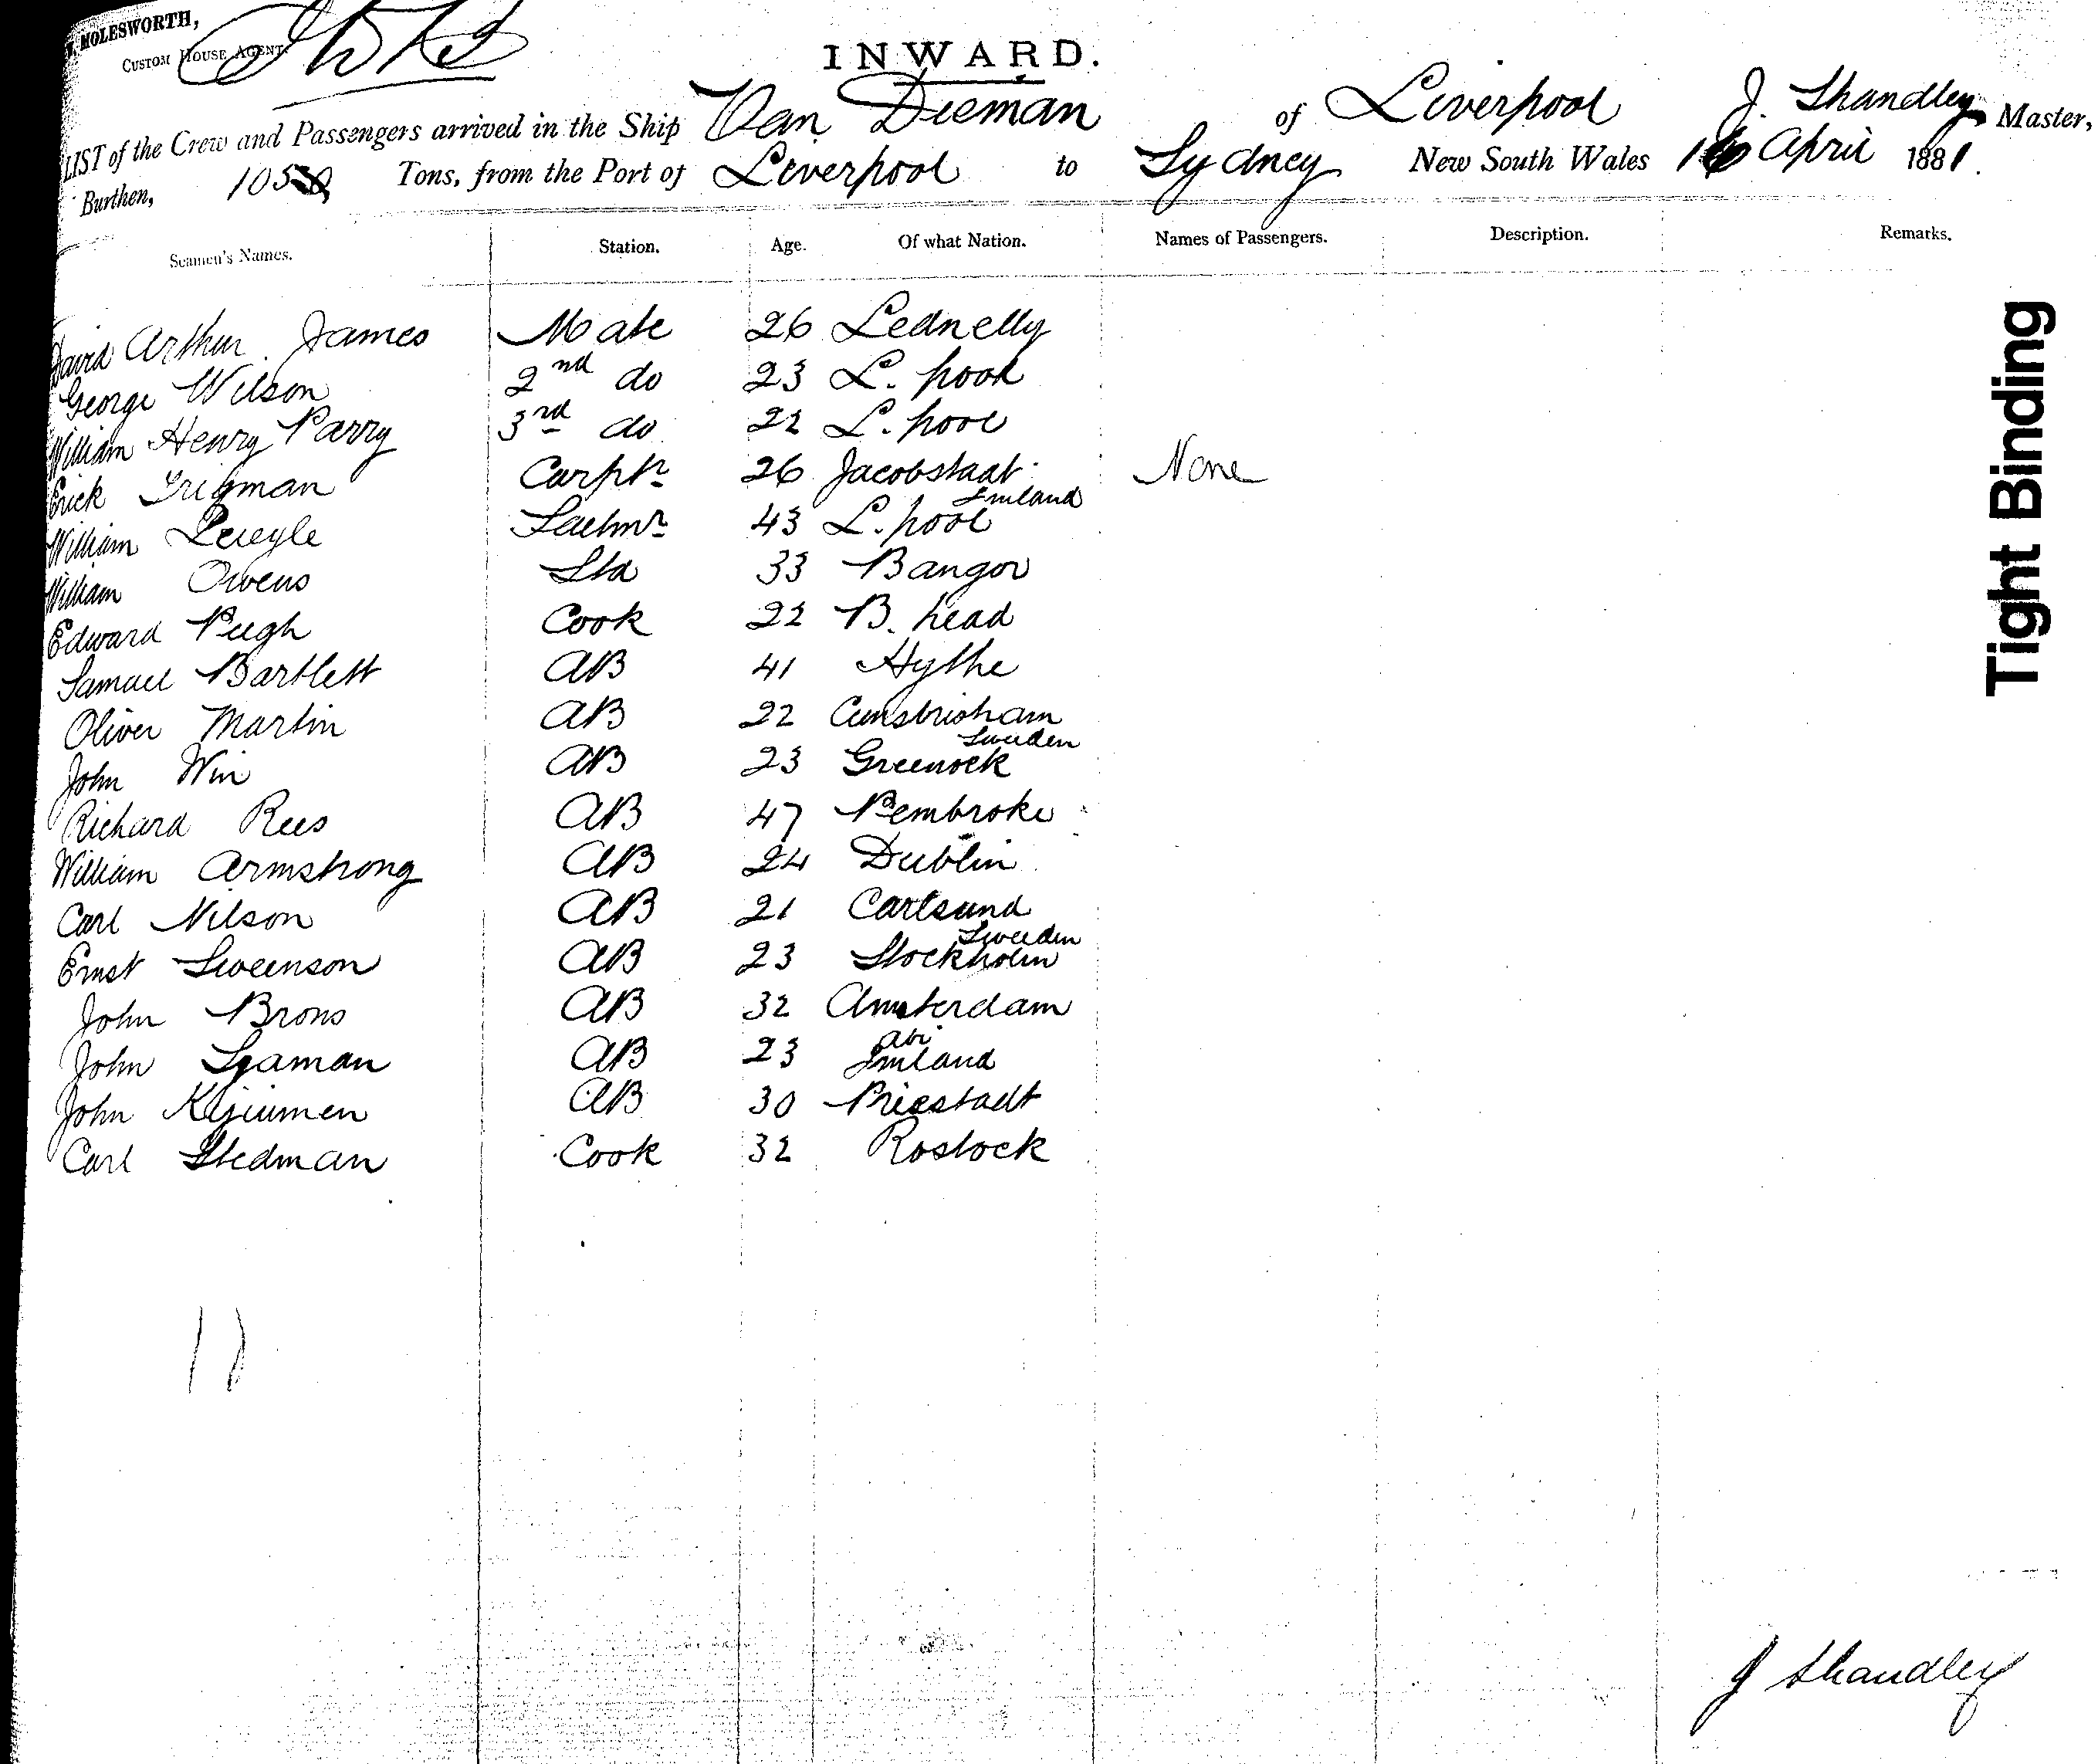 MOLESWORTH,
CUSTOM HOUSE AGENT.
INWARD.
LIST of the Crew and Passengers arrived in the Ship Van Dieman of Liverpool J. Shandley Master,
Burthen, 105 Tons, from the Port of Liverpool to Sydney New South Wales 16 April 1881.
Seamen's Names. Station. Age. Of what Nation. Names of Passengers. Description. Remarks.
David Arthur James Mate 26 Lednelly
George Wilson 2nd do 23 L. pool
William Henry Parry 3rd do 22 L. pool
Erick Carptr 26 Jacobstadt None
Finland
William Saelmr 43 L. pool
William Owens Std 33 Bangor
Edward Pugh Cook 22 B. head
Samuel Bartlett AB 41 Hythe
Oliver Martin AB 22
Sweden
John Win AB 23 Greenock
Richard Rees AB 47 Pembroke
William Armstrong AB 24 Dublin
Carl Nilson AB 21 Carlsund
Sweden
Ernst Sweenson AB 23 Stockholm
John Brons AB 32 Amsterdam
Abi
John Seaman AB 23 Finland
John AB 30
Carl Stedman Cook 32 Rostock
J Shandley
Tight Binding